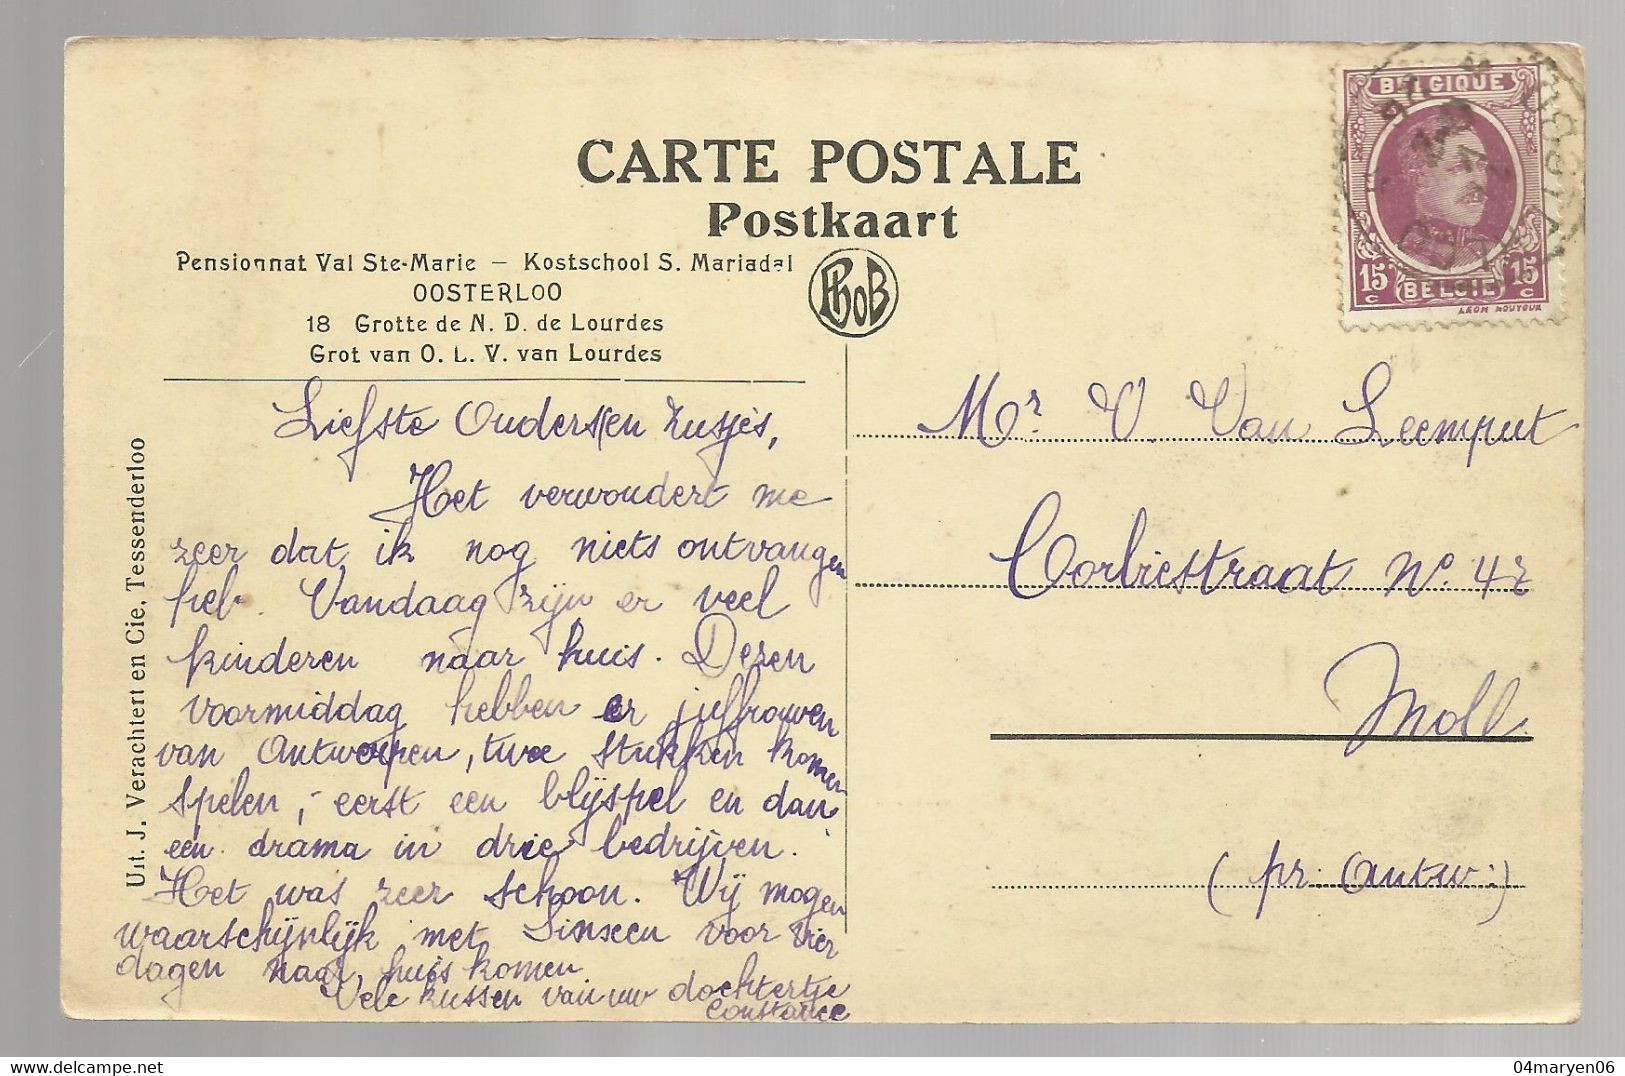 CARTE POSTALE
Postkaart
Pensionnat Val Ste-Marie — Kostschool S. Mariadal
OOSTERLOO
18 Grotte de N. D. de Lourdes
Grot van O. L. V. van Lourdes
PhoB
BELGIQUE
15 c BELGIË 15 c
Uit. J. Verachtert en Cie, Tessenderloo
Liefste Ouders en Zusjes,
Het verwondert me
zeer dat ik nog niets ontvangen
heb. Vandaag zijn er veel
kinderen naar huis. Dezen
voormiddag hebben er juffrouwen
van Antwerpen, twee stukken komen
spelen, - eerst een blijspel en dan
een drama in drie bedrijven.
Het was zeer schoon. Wij mogen
waarschijnlijk met Sinxen voor vier
dagen naar huis komen
Vele kussen van uw dochtertje
Constance
Mr V. Van Leemput
Corbiestraat No. 42
Moll
(pr. Antw:)
04maryen06